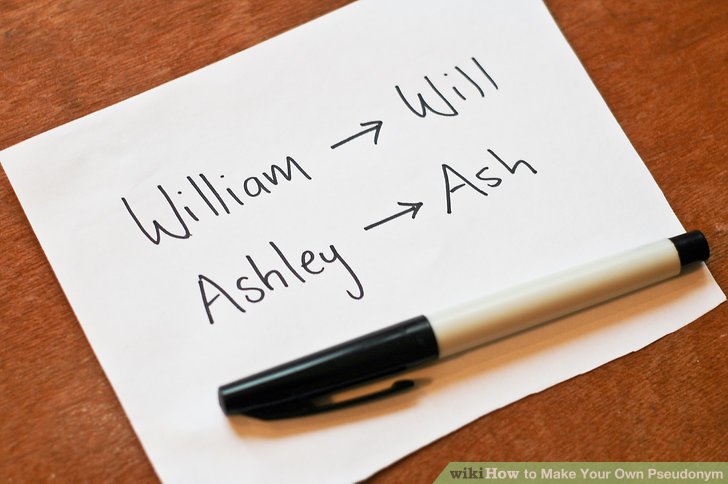 William → Will
Ashley → Ash
wikiHow to Make Your Own Pseudonym